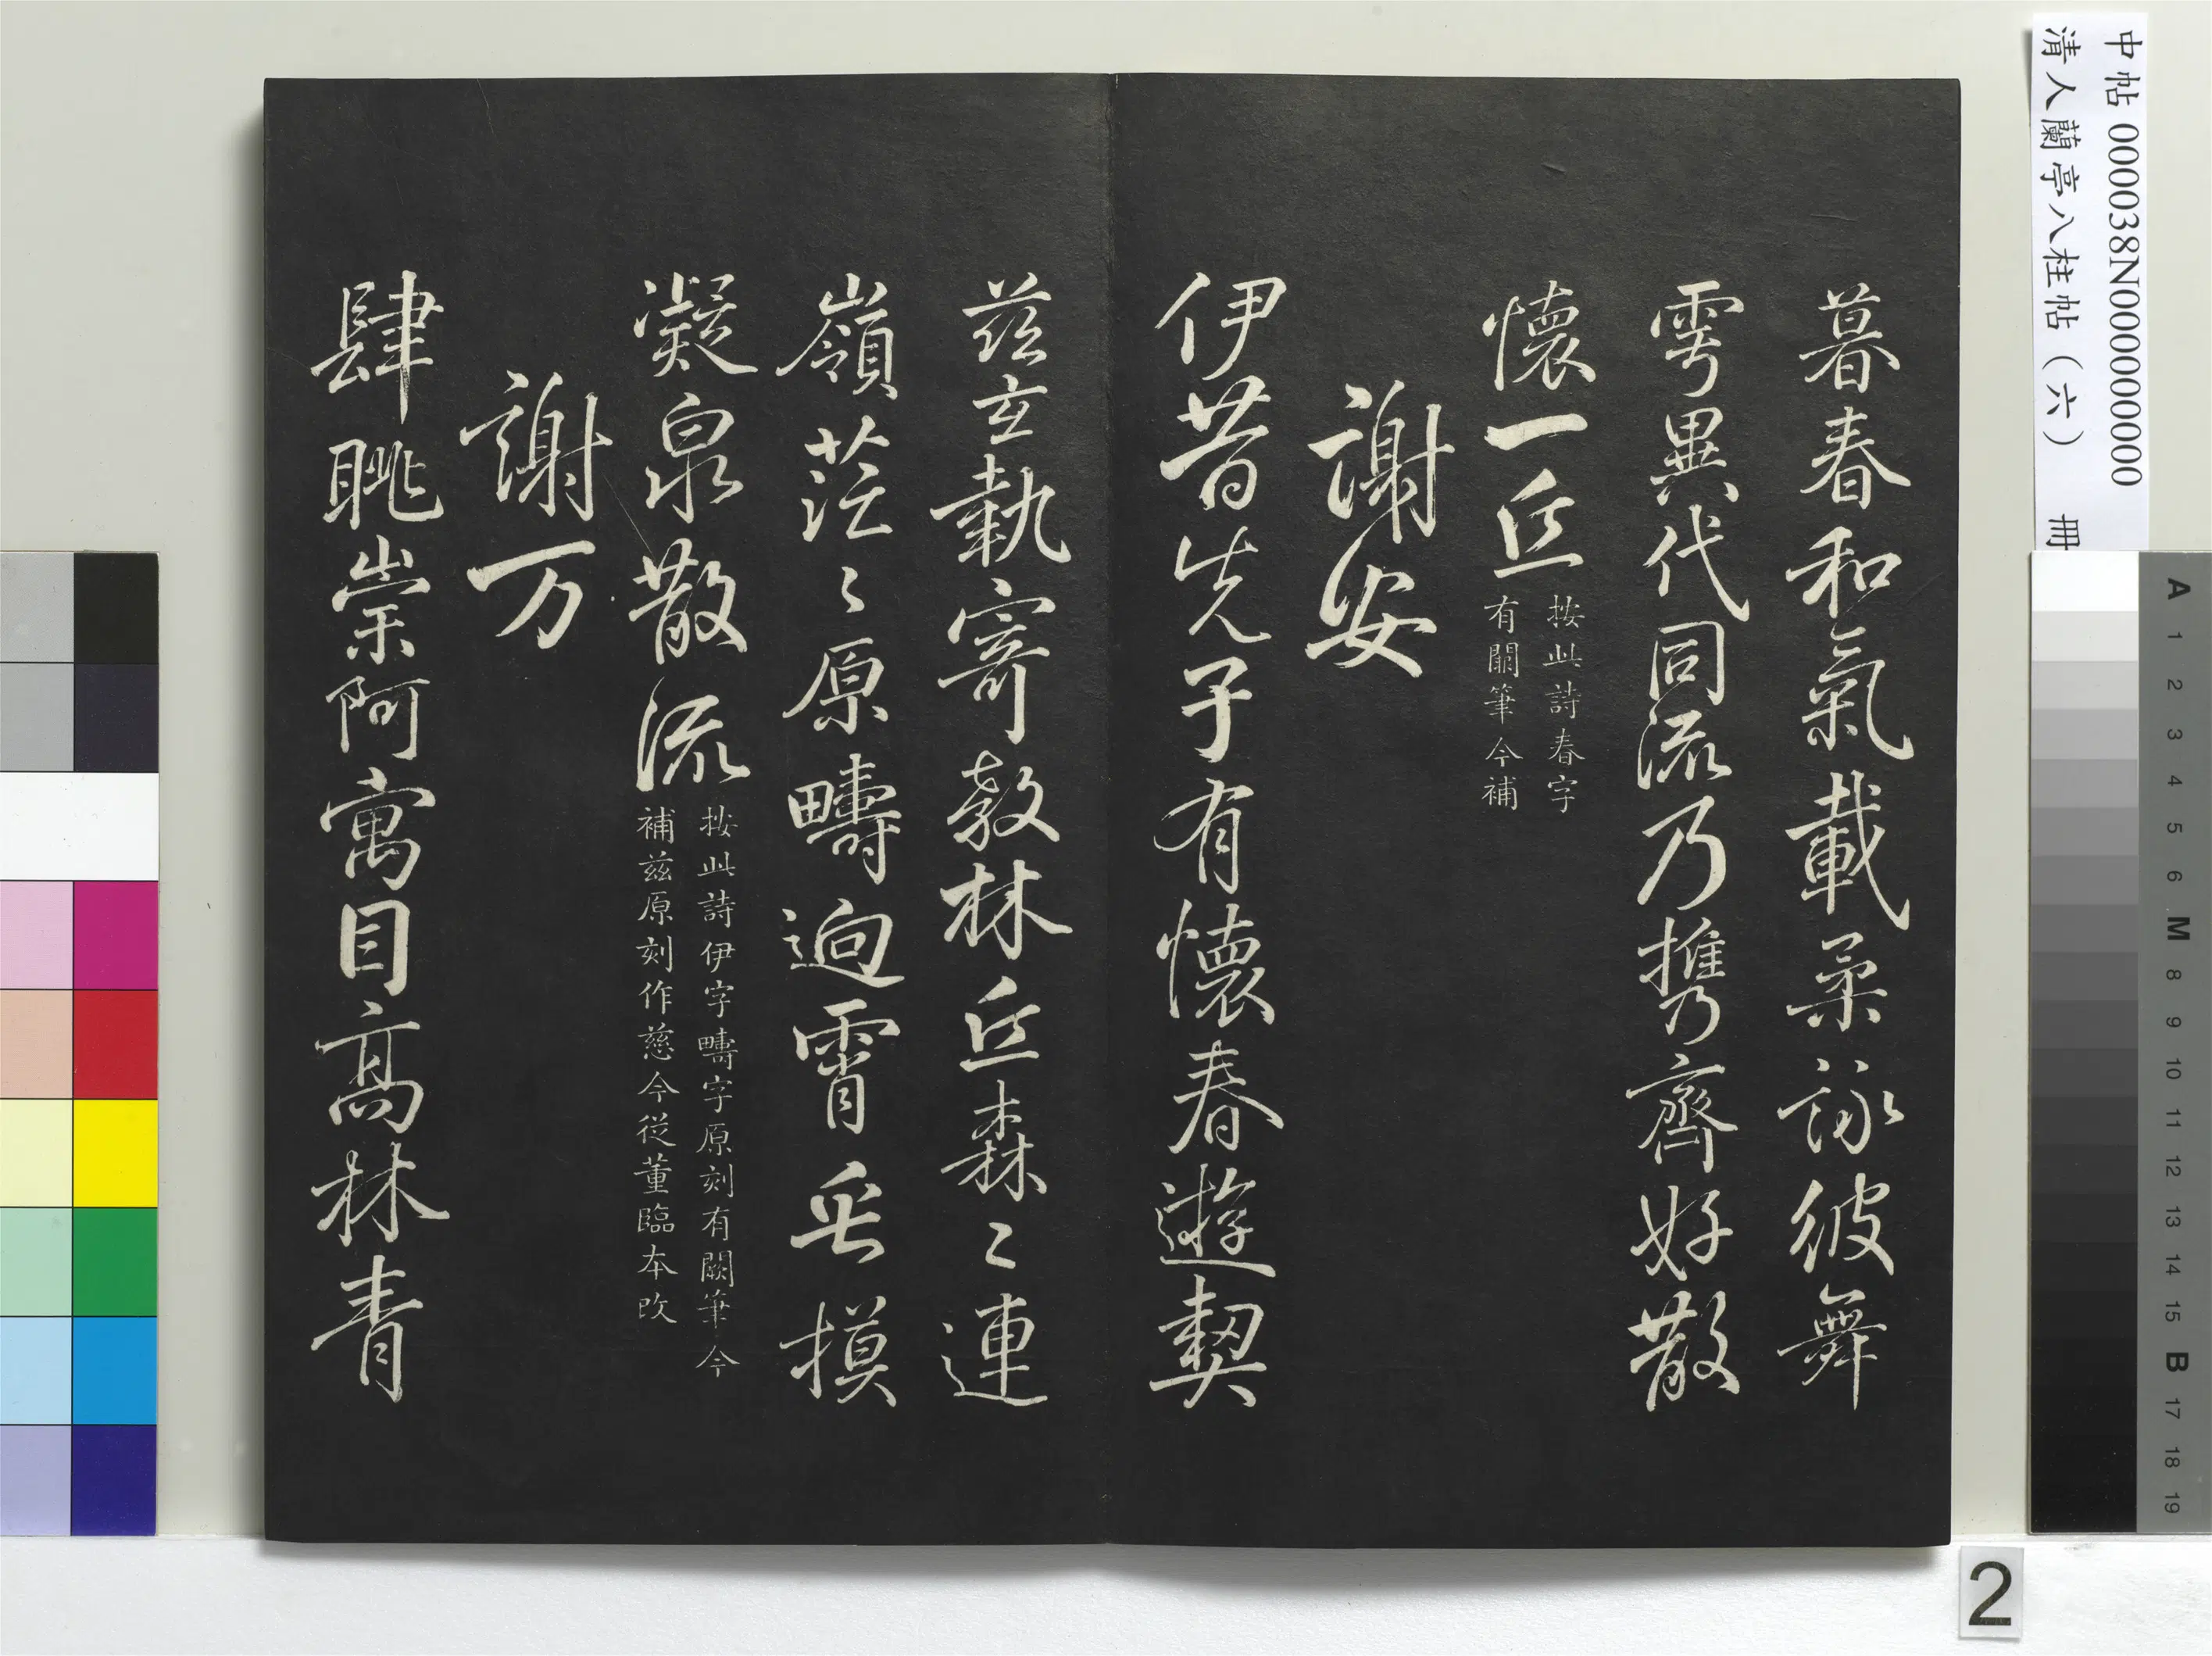 暮春和氣載柔詠彼舞
雩異代同流乃携齊好散
懷一丘
按此詩春字
有闕筆今補
謝安
伊昔先子有懷春遊契
茲玄執寄敖林丘森〻連
嶺茫〻原疇逈霄垂摸
凝泉散流
按此詩伊字疇字原刻有闕筆今
補茲原刻作慈今從董臨本改
謝万
肆眺崇阿寓目高林青
中帖000038N000000000
清人蘭亭八柱帖(六) 冊
A 1 2 3 4 5 6 M 8 9 10 11 12 13 14 15 B 17 18 19
2